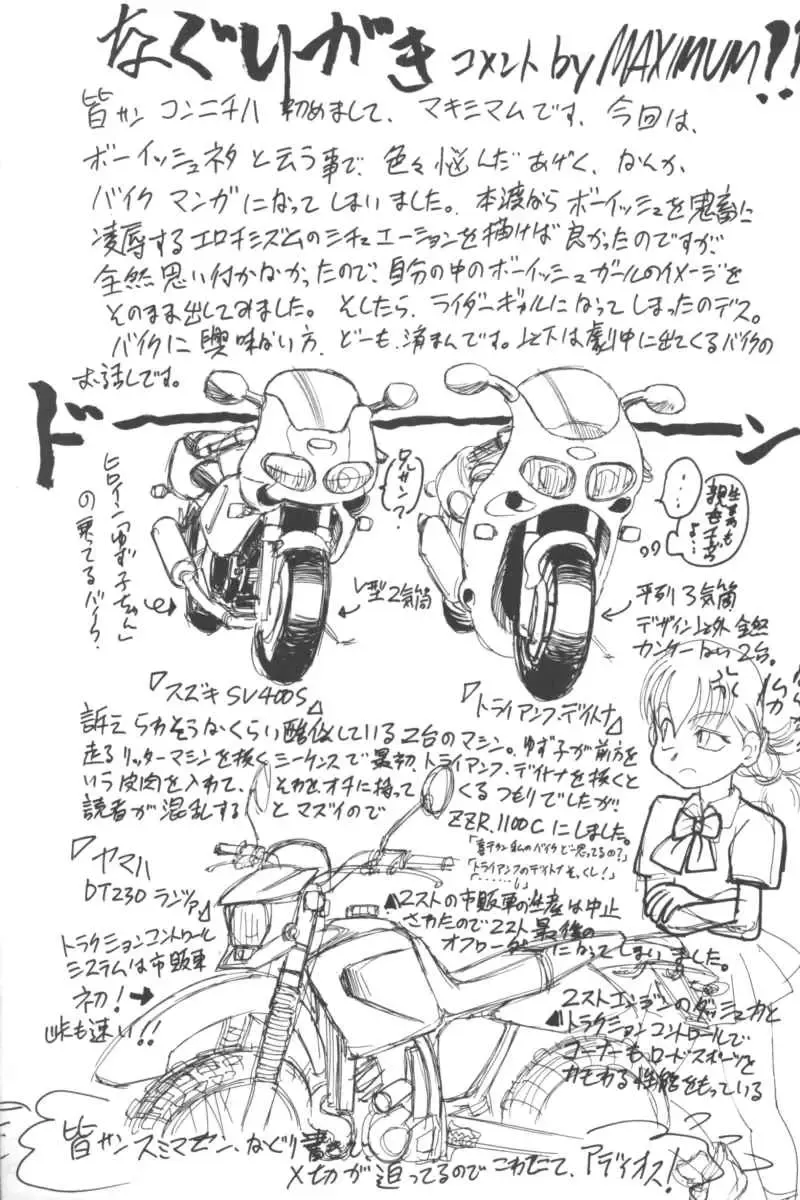 なぐりがき コメント by MAXIMUM!!
皆サン コンニチハ 初めまして、マキシマムです、今回は、
ボーイッシュネタと云う事で、色々悩んだあげく、なんか、
バイクマンガになってしまいました。本渡ならボーイッシュを鬼畜に
凌辱するエロチシズムのシチュエーションを描けば良かったのですが、
全然思い付かなかったので、自分の中のボーイッシュガールのイメージを
そのまま出してみました。そしたら、ライダーギャルになってしまったのデス。
バイクに興味ない方、どーも、済まんです。以下は劇中に出てくるバイクの
お話しです。
ドーーン
ヒロイン「ゆず子ちゃん」
の乗ってるバイク。
兄サン?
・・・
生まれも
親も
よ…
V型2気筒
平列3気筒
デザイン以外全然
カンケーない2台。
「スズキ SV400S」
「トライアンフ・デイトナ」
訴えられそうなくらい酷似している2台のマシン。ゆず子が前方を
走るリッターマシンを抜くシーケンスで最初、トライアンフ・デイトナを抜くと
いう皮肉を入れて、それをオチに持ってくるつもりでしたが、
読者が混乱するとマズイので ZZR1100Cにしました。
「トライアンフのデイトナそっくし!」
「・・・・・・」
「ヤマハ
DT230 ランツァ」
トラクションコントロール
システムは市販車
初!
峠も速い!!
2ストの市販車の生産は中止
されたので2スト最後の
オフローダーになってしまいました。
2ストエンジンのダッシュ力と
トラクションコントロールで
コーナーも、ロードスポーツを
カモれる性能をもっている
皆サンスミマセン、なぐり書きで、
〆切が迫ってるのでこれにて、アディオス!